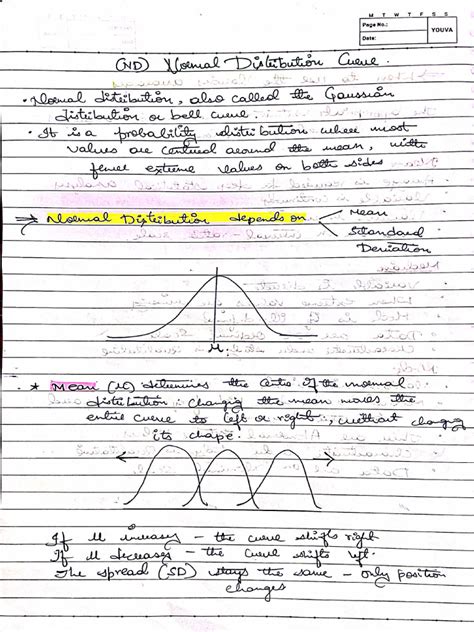 M T W T F S S
Page No.:
Date:
YOUVA
(ND) Normal Distribution Curve.
• Normal distribution, also called the Gaussian
distribution or bell curve.
• It is a probability distribution where most
values are centred around the mean, with
fewer extreme values on both sides
⇒ Normal Distribution depends on Mean
Standard
Deviation
μ
* Mean (μ) determines the centre of the normal
distribution. Changing the mean moves the
entire curve to left or right, without changing
its shape.
If μ increases – the curve shifts right
If μ decreases – the curve shifts left.
The spread (SD) stays the same – only position
changes